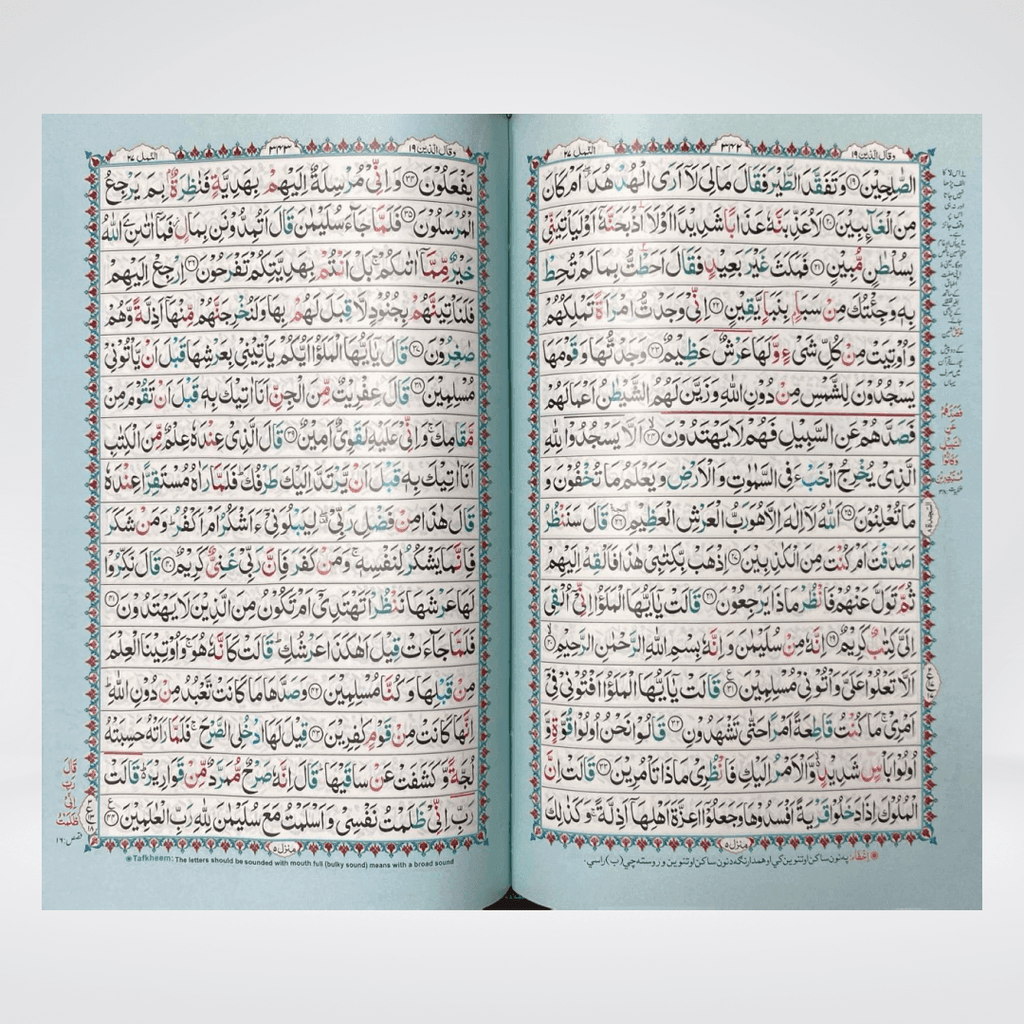 وقال الذین ۱۹
۳۴۲
النمل ۲۷
الصّٰلِحِيْنَ ﴿۱۹﴾ وَتَفَقَّدَ الطَّيْرَ فَقَالَ مَالِيَ لَاۤ اَرَى الْهُدْهُدَ ۖ اَمْ كَانَ
مِنَ الْغَآئِبِيْنَ ﴿۲۰﴾ لَاُعَذِّبَنَّهٗ عَذَابًا شَدِيْدًا اَوْ لَاۡاَذْبَحَنَّهٗۤ اَوْ لَيَاْتِيَنِّيْ
بِسُلْطٰنٍ مُّبِيْنٍ ﴿۲۱﴾ فَمَكَثَ غَيْرَ بَعِيْدٍ فَقَالَ اَحَطْتُّ بِمَا لَمْ تُحِطْ
بِهٖ وَجِئْتُكَ مِنْ سَبَاٍۭ بِنَبَاٍ يَّقِيْنٍ ﴿۲۲﴾ اِنِّيْ وَجَدْتُّ امْرَاَةً تَمْلِكُهُمْ
وَاُوْتِيَتْ مِنْ كُلِّ شَيْءٍ وَّلَهَا عَرْشٌ عَظِيْمٌ ﴿۲۳﴾ وَجَدْتُّهَا وَقَوْمَهَا
يَسْجُدُوْنَ لِلشَّمْسِ مِنْ دُوْنِ اللّٰهِ وَزَيَّنَ لَهُمُ الشَّيْطٰنُ اَعْمَالَهُمْ
فَصَدَّهُمْ عَنِ السَّبِيْلِ فَهُمْ لَا يَهْتَدُوْنَ ﴿۲۴﴾ اَلَّا يَسْجُدُوْا لِلّٰهِ
الَّذِيْ يُخْرِجُ الْخَبْءَ فِي السَّمٰوٰتِ وَالْاَرْضِ وَيَعْلَمُ مَا تُخْفُوْنَ وَ
مَا تُعْلِنُوْنَ ﴿۲۵﴾ اَللّٰهُ لَاۤ اِلٰهَ اِلَّا هُوَ رَبُّ الْعَرْشِ الْعَظِيْمِ ﴿۲۶﴾ قَالَ سَنَنْظُرُ
اَصَدَقْتَ اَمْ كُنْتَ مِنَ الْكٰذِبِيْنَ ﴿۲۷﴾ اِذْهَبْ بِّكِتٰبِيْ هٰذَا فَاَلْقِهْ اِلَيْهِمْ
ثُمَّ تَوَلَّ عَنْهُمْ فَانْظُرْ مَاذَا يَرْجِعُوْنَ ﴿۲۸﴾ قَالَتْ يٰۤاَيُّهَا الْمَلَؤُا اِنِّيْۤ اُلْقِيَ
اِلَيَّ كِتٰبٌ كَرِيْمٌ ﴿۲۹﴾ اِنَّهٗ مِنْ سُلَيْمٰنَ وَاِنَّهٗ بِسْمِ اللّٰهِ الرَّحْمٰنِ الرَّحِيْمِ ﴿۳۰﴾
اَلَّا تَعْلُوْا عَلَيَّ وَاْتُوْنِيْ مُسْلِمِيْنَ ﴿۳۱﴾ قَالَتْ يٰۤاَيُّهَا الْمَلَؤُا اَفْتُوْنِيْ فِيْۤ
اَمْرِيْ ۚ مَا كُنْتُ قَاطِعَةً اَمْرًا حَتّٰى تَشْهَدُوْنِ ﴿۳۲﴾ قَالُوْا نَحْنُ اُولُوْا قُوَّةٍ وَّ
اُولُوْا بَاْسٍ شَدِيْدٍ ۙ وَّالْاَمْرُ اِلَيْكِ فَانْظُرِيْ مَاذَا تَاْمُرِيْنَ ﴿۳۳﴾ قَالَتْ اِنَّ
الْمُلُوْكَ اِذَا دَخَلُوْا قَرْيَةً اَفْسَدُوْهَا وَجَعَلُوْۤا اَعِزَّةَ اَهْلِهَاۤ اَذِلَّةً ۚ وَكَذٰلِكَ
منزل ۵
وقال الذین ۱۹
۳۴۳
النمل ۲۷
يَفْعَلُوْنَ ﴿۳۴﴾ وَاِنِّيْ مُرْسِلَةٌ اِلَيْهِمْ بِهَدِيَّةٍ فَنٰظِرَةٌۢ بِمَ يَرْجِعُ
الْمُرْسَلُوْنَ ﴿۳۵﴾ فَلَمَّا جَآءَ سُلَيْمٰنَ قَالَ اَتُمِدُّوْنَنِ بِمَالٍ فَمَاۤ اٰتٰىنِۦَ اللّٰهُ
خَيْرٌ مِّمَّاۤ اٰتٰىكُمْ ۚ بَلْ اَنْتُمْ بِهَدِيَّتِكُمْ تَفْرَحُوْنَ ﴿۳۶﴾ اِرْجِعْ اِلَيْهِمْ
فَلَنَاْتِيَنَّهُمْ بِجُنُوْدٍ لَّا قِبَلَ لَهُمْ بِهَا وَلَنُخْرِجَنَّهُمْ مِّنْهَاۤ اَذِلَّةً وَّهُمْ
صٰغِرُوْنَ ﴿۳۷﴾ قَالَ يٰۤاَيُّهَا الْمَلَؤُا اَيُّكُمْ يَاْتِيْنِيْ بِعَرْشِهَا قَبْلَ اَنْ يَّاْتُوْنِيْ
مُسْلِمِيْنَ ﴿۳۸﴾ قَالَ عِفْرِيْتٌ مِّنَ الْجِنِّ اَنَا اٰتِيْكَ بِهٖ قَبْلَ اَنْ تَقُوْمَ مِنْ
مَّقَامِكَ ۚ وَاِنِّيْ عَلَيْهِ لَقَوِيٌّ اَمِيْنٌ ﴿۳۹﴾ قَالَ الَّذِيْ عِنْدَهٗ عِلْمٌ مِّنَ الْكِتٰبِ
اَنَا اٰتِيْكَ بِهٖ قَبْلَ اَنْ يَّرْتَدَّ اِلَيْكَ طَرْفُكَ ؕ فَلَمَّا رَاٰهُ مُسْتَقِرًّا عِنْدَهٗ
قَالَ هٰذَا مِنْ فَضْلِ رَبِّيْ ۖ لِيَبْلُوَنِيْۤ ءَاَشْكُرُ اَمْ اَكْفُرُ ؕ وَمَنْ شَكَرَ
فَاِنَّمَا يَشْكُرُ لِنَفْسِهٖ ۚ وَمَنْ كَفَرَ فَاِنَّ رَبِّيْ غَنِيٌّ كَرِيْمٌ ﴿۴۰﴾ قَالَ نَكِّرُوْا
لَهَا عَرْشَهَا نَنْظُرْ اَتَهْتَدِيْۤ اَمْ تَكُوْنُ مِنَ الَّذِيْنَ لَا يَهْتَدُوْنَ ﴿۴۱﴾
فَلَمَّا جَآءَتْ قِيْلَ اَهٰكَذَا عَرْشُكِ ؕ قَالَتْ كَاَنَّهٗ هُوَ ۚ وَاُوْتِيْنَا الْعِلْمَ
مِنْ قَبْلِهَا وَكُنَّا مُسْلِمِيْنَ ﴿۴۲﴾ وَصَدَّهَا مَا كَانَتْ تَّعْبُدُ مِنْ دُوْنِ اللّٰهِ ؕ
اِنَّهَا كَانَتْ مِنْ قَوْمٍ كٰفِرِيْنَ ﴿۴۳﴾ قِيْلَ لَهَا ادْخُلِي الصَّرْحَ ۚ فَلَمَّا رَاَتْهُ حَسِبَتْهُ
لُجَّةً وَّكَشَفَتْ عَنْ سَاقَيْهَا ؕ قَالَ اِنَّهٗ صَرْحٌ مُّمَرَّدٌ مِّنْ قَوَارِيْرَ ؕ قَالَتْ
رَبِّ اِنِّيْ ظَلَمْتُ نَفْسِيْ وَاَسْلَمْتُ مَعَ سُلَيْمٰنَ لِلّٰهِ رَبِّ الْعٰلَمِيْنَ ﴿۴۴﴾
منزل ۵
قَالَ
رَبِّ
اِنِّيْ
ظَلَمْتُ
قصص: ۱۶
Tafkheem: The letters should be sounded with mouth full (bulky sound) means with a broad sound